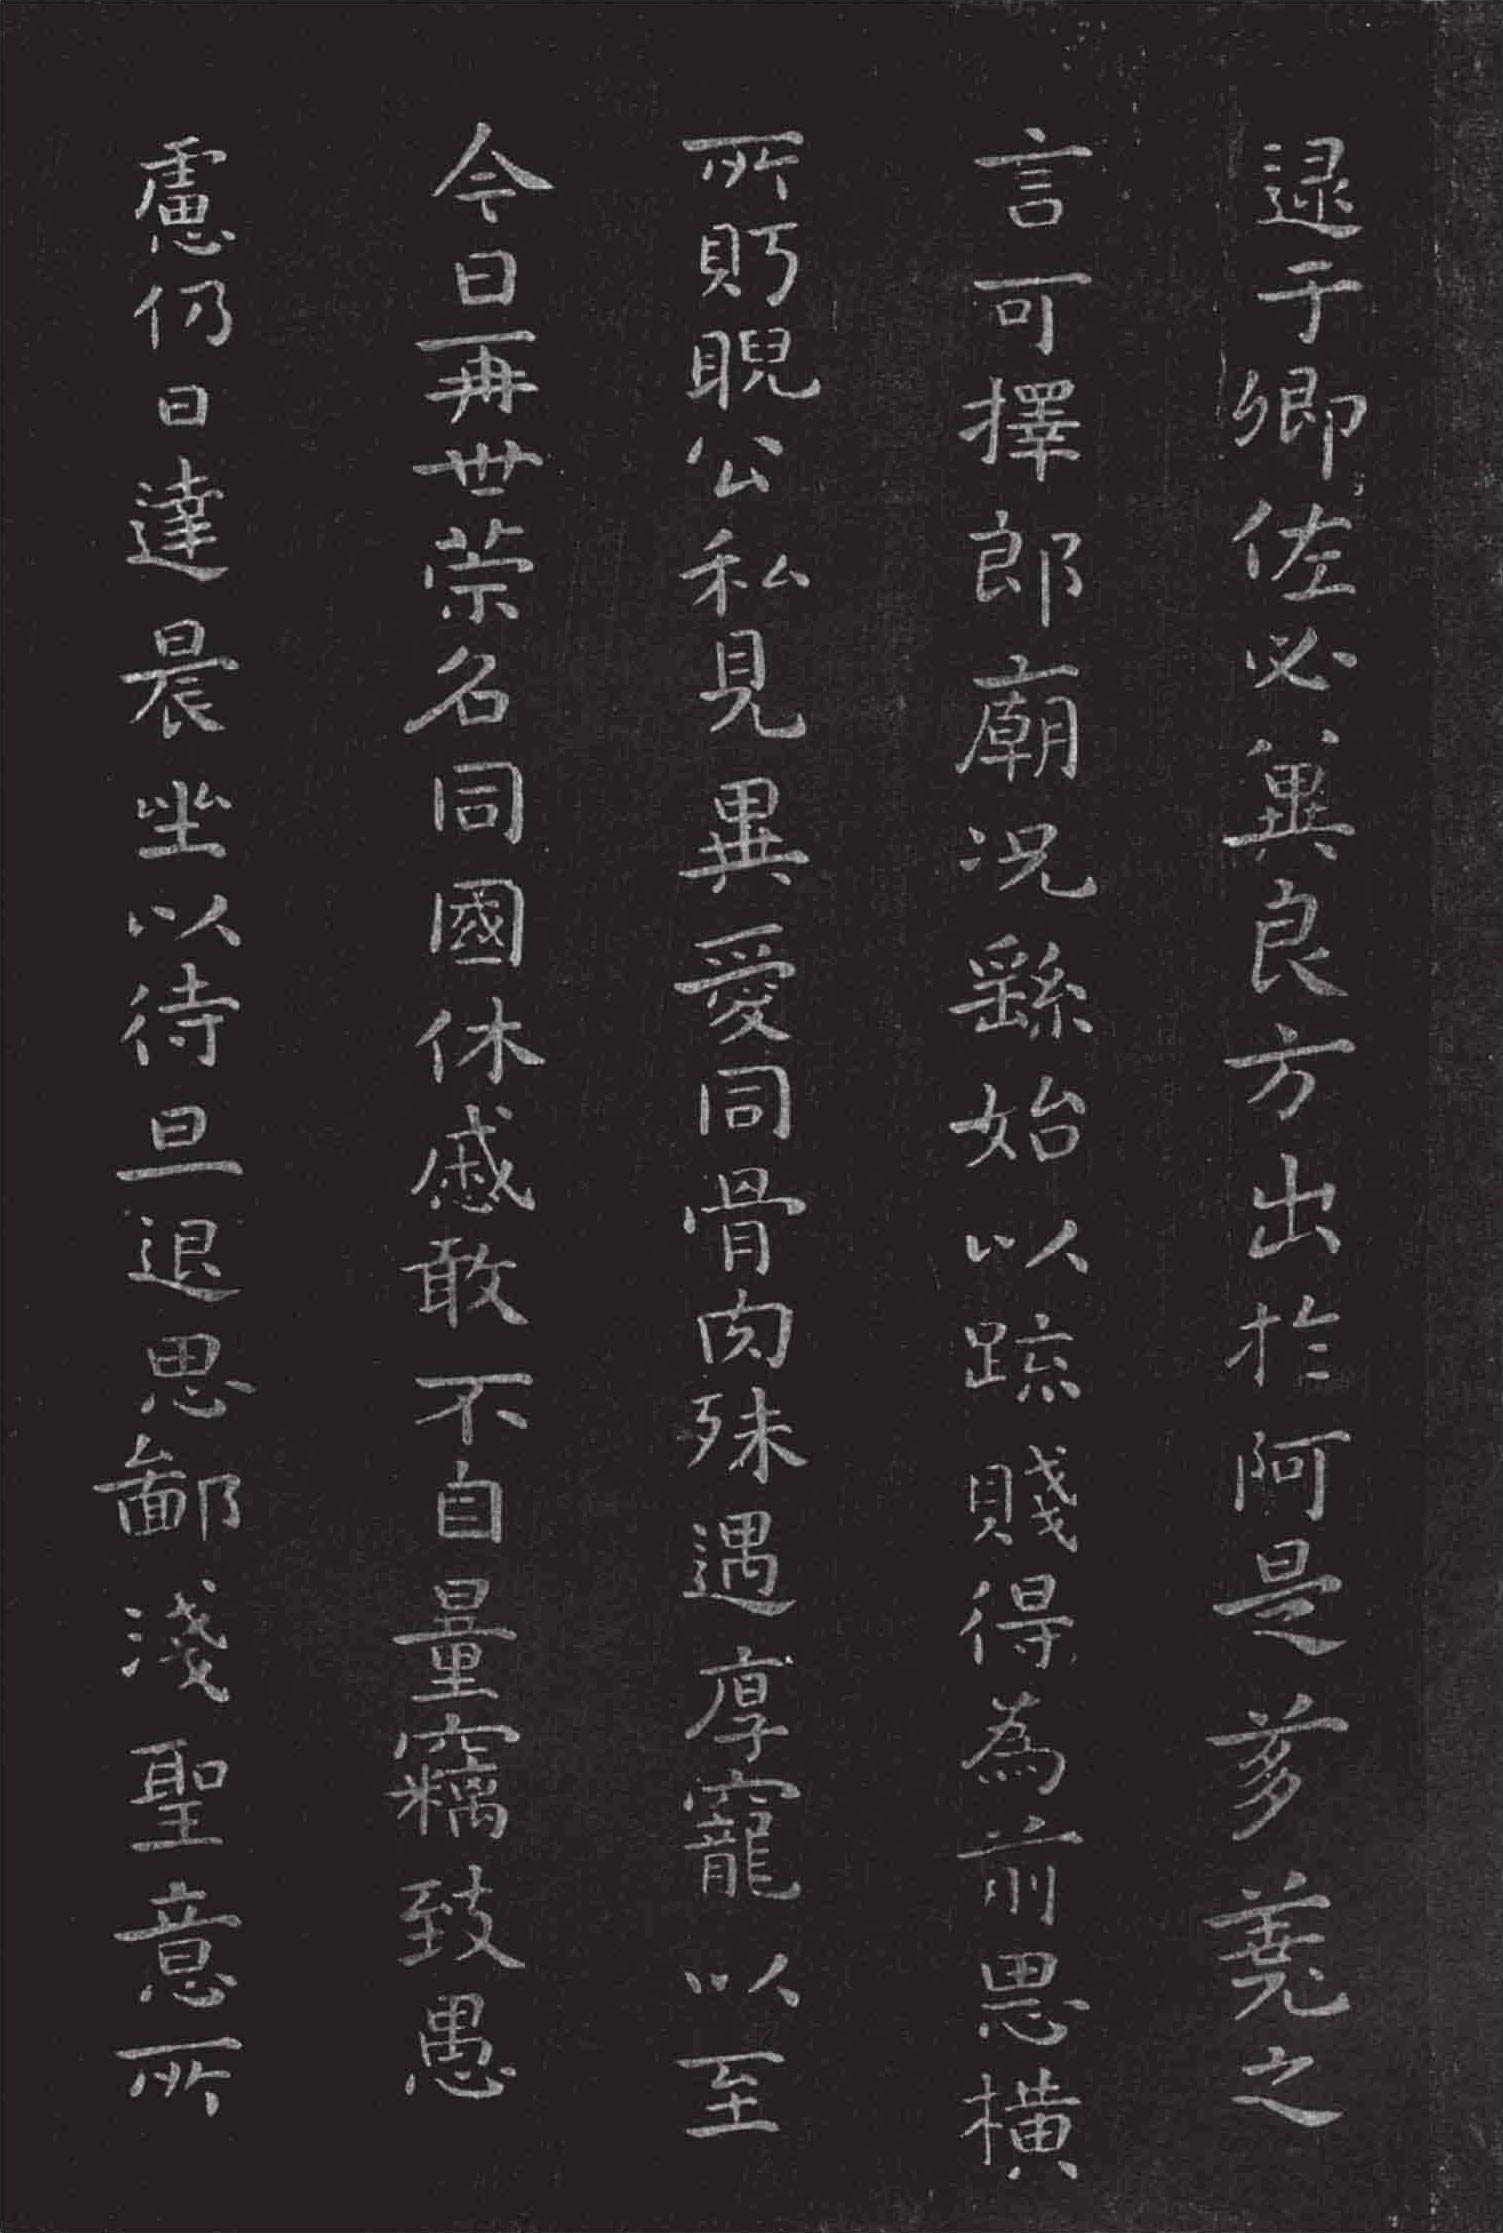 逮于卿佐必冀良方出於阿是芻蕘之
言可擇郎廟况繇始以疏賤得為前恩橫
所眄睨公私見異愛同骨肉殊遇厚寵以至
今日再世荣名同國休慼敢不自量竊致愚
慮仍日達晨坐以待旦退思鄙淺聖意所